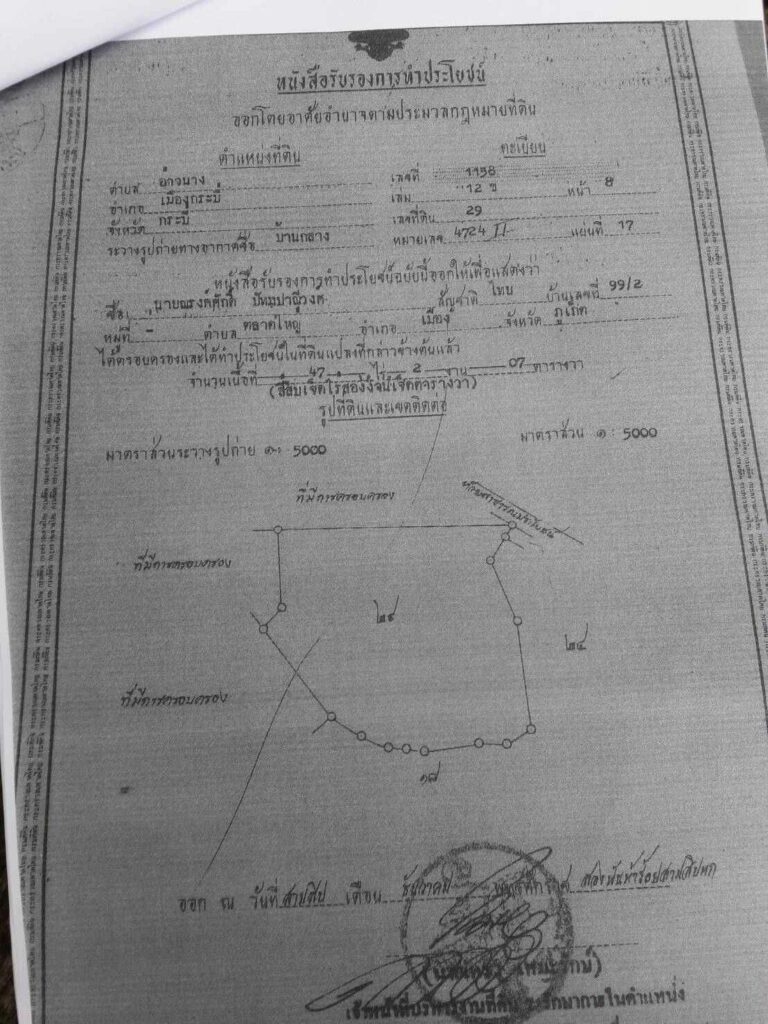 หนังสือรับรองการทำประโยชน์
ออกโดยอาศัยอำนาจตามประมวลกฎหมายที่ดิน
ตำแหน่งที่ดิน
ทะเบียน
ตำบล อ่าวนาง เลขที่ 1158
อำเภอ เมืองกระบี่ เล่ม 12 ข หน้า 8
จังหวัด กระบี่ เลขที่ดิน 29
ระวางรูปถ่ายทางอากาศชื่อ บ้านกลาง หมายเลข 4724 II แผ่นที่ 17
หนังสือรับรองการทำประโยชน์ฉบับนี้ออกให้เพื่อแสดงว่า
ชื่อ นายณรงค์ศักดิ์ ปัทมปาณีวงศ์ สัญชาติ ไทย บ้านเลขที่ 99/2
หมู่ที่ - ตำบล ตลาดใหญ่ อำเภอ เมือง จังหวัด ภูเก็ต
ได้ครอบครองและได้ทำประโยชน์ในที่ดินแปลงที่กล่าวข้างต้นแล้ว
จำนวนเนื้อที่ 47 ไร่ 2 งาน 07 ตารางวา
(สี่สิบเจ็ดไร่สองงานเจ็ดตารางวา)
รูปที่ดินและเขตติดต่อ
มาตราส่วนระวางรูปถ่าย ๑: 5000
มาตราส่วน ๑ : 5000
ที่มีการครอบครอง
ที่มีการครอบครอง
๒๙
๒๔
ที่มีการครอบครอง
๑๗
ออก ณ วันที่ สามสิบ เดือน ธันวาคม พุทธศักราช สองพันห้าร้อยสามสิบหก
เจ้าหน้าที่บริหารงานที่ดิน รักษาการในตำแหน่ง